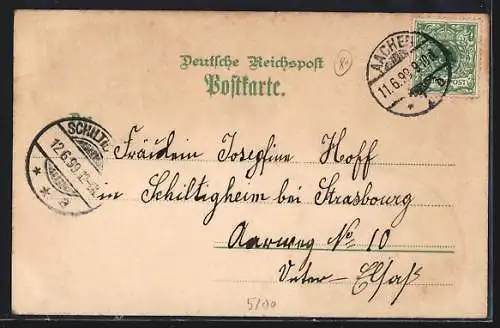 Deutsche Reichspost
Postkarte.
AACHEN
11.6.99.
SCHILTI
12.6.99.
a
Fräulein Josefine Hoff
in Schiltigheim bei Strasbourg
Aarweg No 10
Unter-Elsaß
5/00